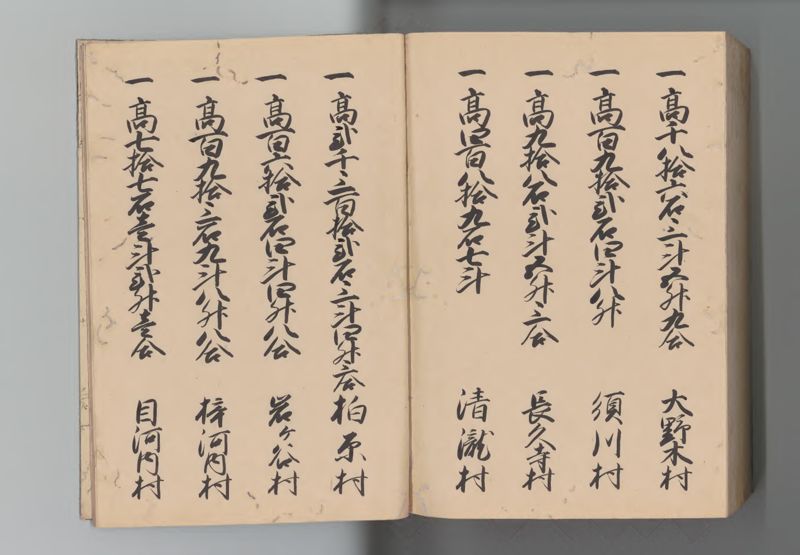 一 高千八拾六石三斗五升九合 大野木村
一 高百九拾弐石四斗八升 須川村
一 高九拾八石弐斗五升三合 長久寺村
一 高四百八拾九石七斗 清瀧村
一 高弐千三百拾弐石三斗四升六合 柏原村
一 高百六拾弐石四斗四升八合 岩ケ谷村
一 高百九拾三石九斗八升八合 梓河内村
一 高七拾七石壱斗弐升壱合 目河内村